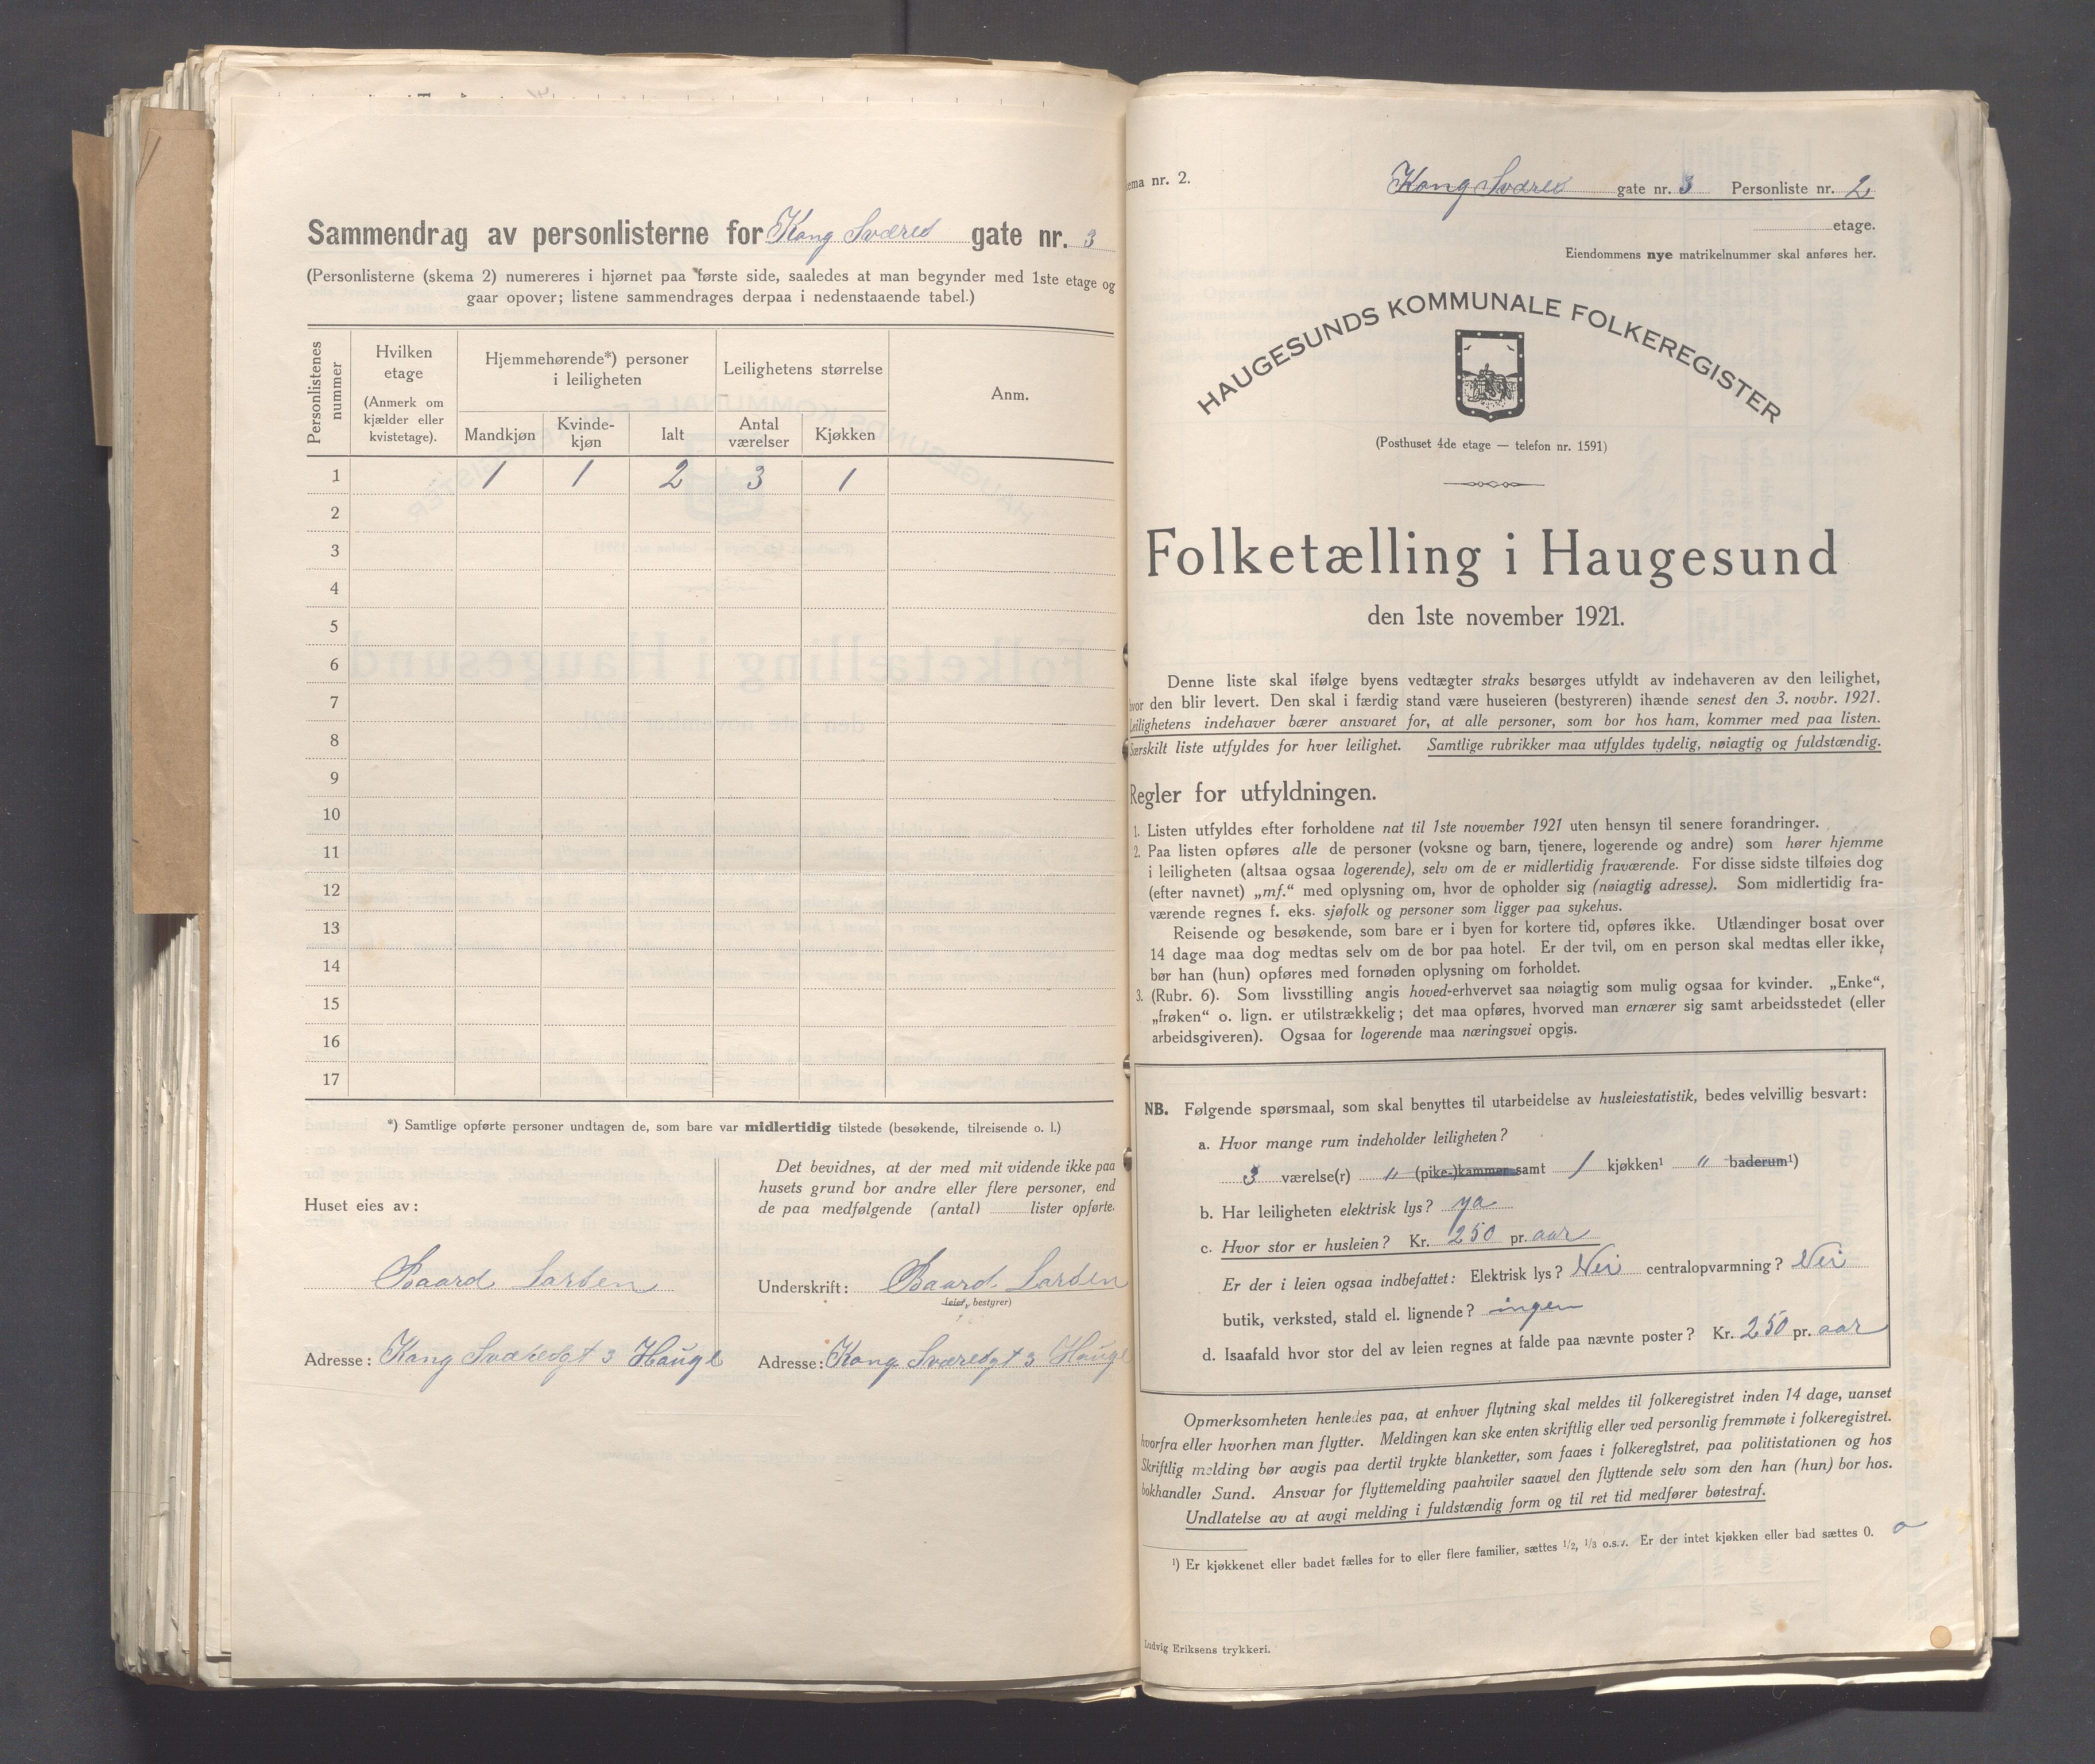 Sammendrag av personlisterne for Kong Sværes gate nr. 3
(Personlisterne (skema 2) numereres i hjørnet paa første side, saaledes at man begynder med 1ste etage og
gaar opover; listene sammendrages derpaa i nedenstaaende tabel.)
Personlistenes nummer
Hvilken etage
(Anmerk om kjælder eller kvistetage).
Hjemmehørende*) personer i leiligheten
Leilighetens størrelse
Anm.
Mandkjøn
Kvinde-kjøn
Ialt
Antal værelser
Kjøkken
1 1 1 2 3 1
2
3
4
5
6
7
8
9
10
11
12
13
14
15
16
17
*) Samtlige opførte personer undtagen de, som bare var midlertidig tilstede (besøkende, tilreisende o. l.)
Huset eies av:
Baard Larsen
Adresse: Kong Sværesgt 3 Hauge
Det bevidnes, at der med mit vidende ikke paa
husets grund bor andre eller flere personer, end
de paa medfølgende (antal) lister opførte.
Underskrift: Baard Larsen
(eier, bestyrer)
Adresse: Kong Sværesgt 3 Hauge
ema nr. 2.
Kong Sværes gate nr. 3 Personliste nr. 2
etage.
Eiendommens nye matrikelnummer skal anføres her.
HAUGESUNDS KOMMUNALE FOLKEREGISTER
(Posthuset 4de etage — telefon nr. 1591)
Folketælling i Haugesund
den 1ste november 1921.
Denne liste skal ifølge byens vedtægter straks besørges utfyldt av indehaveren av den leilighet,
hvor den blir levert. Den skal i færdig stand være huseieren (bestyreren) ihænde senest den 3. novbr. 1921.
Leilighetens indehaver bærer ansvaret for, at alle personer, som bor hos ham, kommer med paa listen.
Særskilt liste utfyldes for hver leilighet. Samtlige rubrikker maa utfyldes tydelig, nøiagtig og fuldstændig.
Regler for utfyldningen.
1. Listen utfyldes efter forholdene nat til 1ste november 1921 uten hensyn til senere forandringer.
2. Paa listen opføres alle de personer (voksne og barn, tjenere, logerende og andre) som hører hjemme
i leiligheten (altsaa ogsaa logerende), selv om de er midlertidig fraværende. For disse sidste tilføies dog
(efter navnet) „mf.“ med oplysning om, hvor de opholder sig (nøiagtig adresse). Som midlertidig fra-
værende regnes f. eks. sjøfolk og personer som ligger paa sykehus.
Reisende og besøkende, som bare er i byen for kortere tid, opføres ikke. Utlændinger bosat over
14 dage maa dog medtas selv om de bor paa hotel. Er der tvil, om en person skal medtas eller ikke,
bør han (hun) opføres med fornøden oplysning om forholdet.
3. (Rubr. 6). Som livsstilling angis hoved-erhvervet saa nøiagtig som mulig ogsaa for kvinder. „Enke“,
„frøken“ o. lign. er utilstrækkelig; det maa opføres, hvorved man ernærer sig samt arbeidsstedet (eller
arbeidsgiveren). Ogsaa for logerende maa næringsvei opgis.
NB. Følgende spørsmaal, som skal benyttes til utarbeidelse av husleiestatistik, bedes velvillig besvart:
a. Hvor mange rum indeholder leiligheten?
3 værelse(r) „ (pike-)kammer samt 1 kjøkken¹ „ baderum¹)
b. Har leiligheten elektrisk lys? ya
c. Hvor stor er husleien? Kr. 250 pr. aar
Er der i leien ogsaa indbefattet: Elektrisk lys? Nei centralopvarmning? Nei
butik, verksted, stald el. lignende? ingen
d. Isaafald hvor stor del av leien regnes at falde paa nævnte poster? Kr. 250 pr. aar
Opmerksomheten henledes paa, at enhver flytning skal meldes til folkeregistret inden 14 dage, uanset
hvorfra eller hvorhen man flytter. Meldingen kan ske enten skriftlig eller ved personlig fremmøte i folkeregistret.
Skriftlig melding bør avgis paa dertil trykte blanketter, som faaes i folkeregistret, paa politistationen og hos
bokhandler Sund. Ansvar for flyttemelding paahviler saavel den flyttende selv som den han (hun) bor hos.
Undlatelse av at avgi melding i fuldstændig form og til ret tid medfører bøtestraf.
¹) Er kjøkkenet eller badet fælles for to eller flere familier, sættes 1/2, 1/3 o.s.v. Er der intet kjøkken eller bad sættes 0. o
Ludvig Eriksens trykkeri.